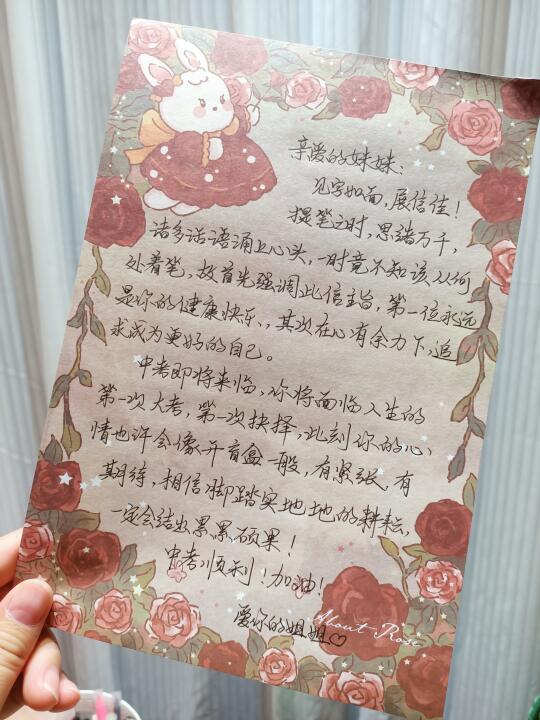 亲爱的妹妹：
见字如面，展信佳！
提笔之时，思绪万千，
诸多话语涌上心头，一时竟不知该从何
处着笔，故首先强调此信主旨，第一位永远
是你的健康快乐、，其次在心有余力下，追
求成为更好的自己。
中考即将来临，你将面临人生的
第一次大考，第一次抉择，此刻你的心
情也许会像开盲盒一般，有紧张，有
期待，相信脚踏实地地的耕耘，
一定会结出累累硕果！
中考顺利！加油！
爱你的姐姐♡
About Rose